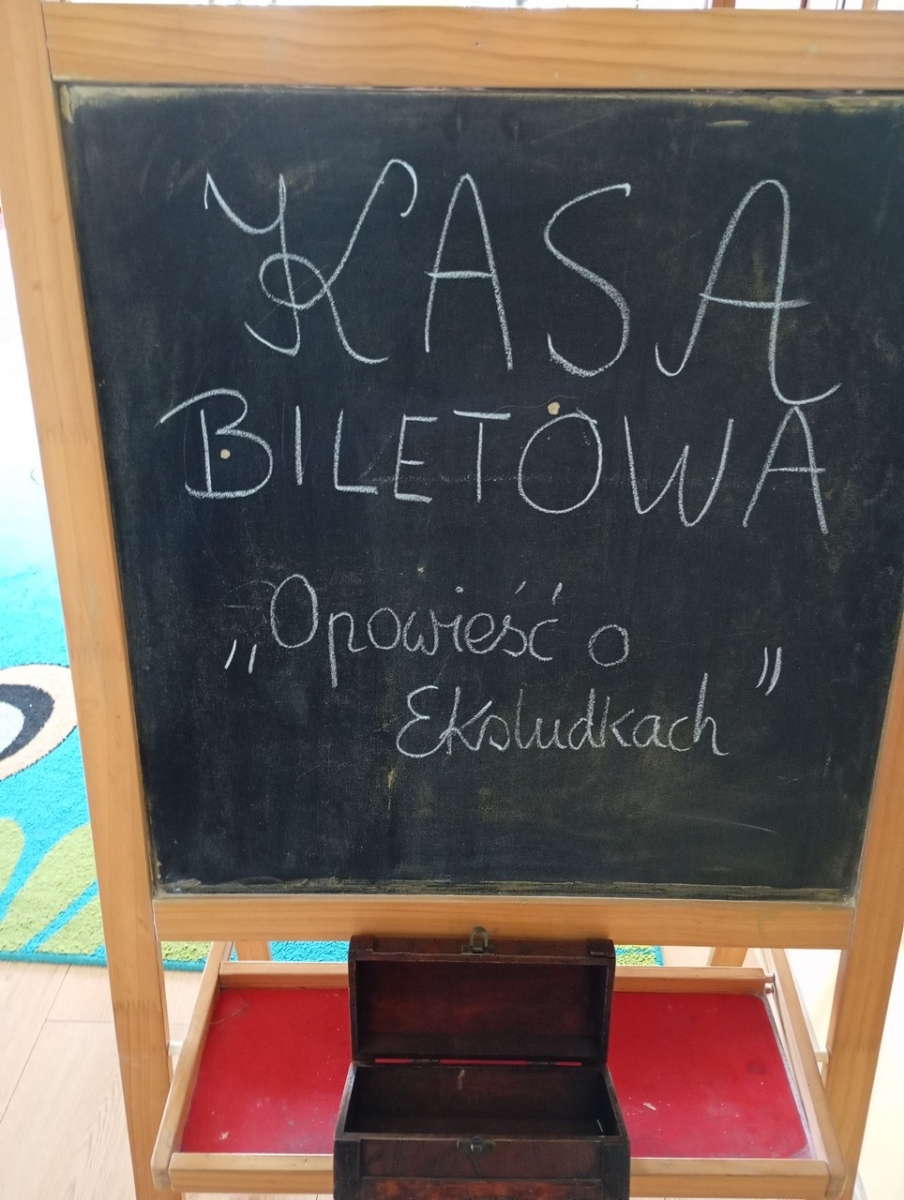 KASA
BILETOWA
„Opowieść o
Eksludkach”